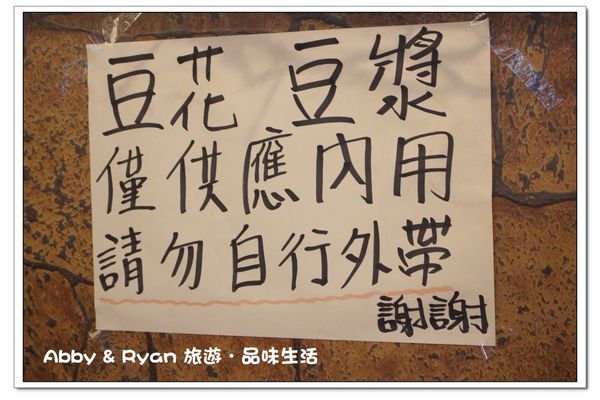 豆花 豆漿
僅供應內用
請勿自行外帶
謝謝
Abby & Ryan 旅遊・品味生活